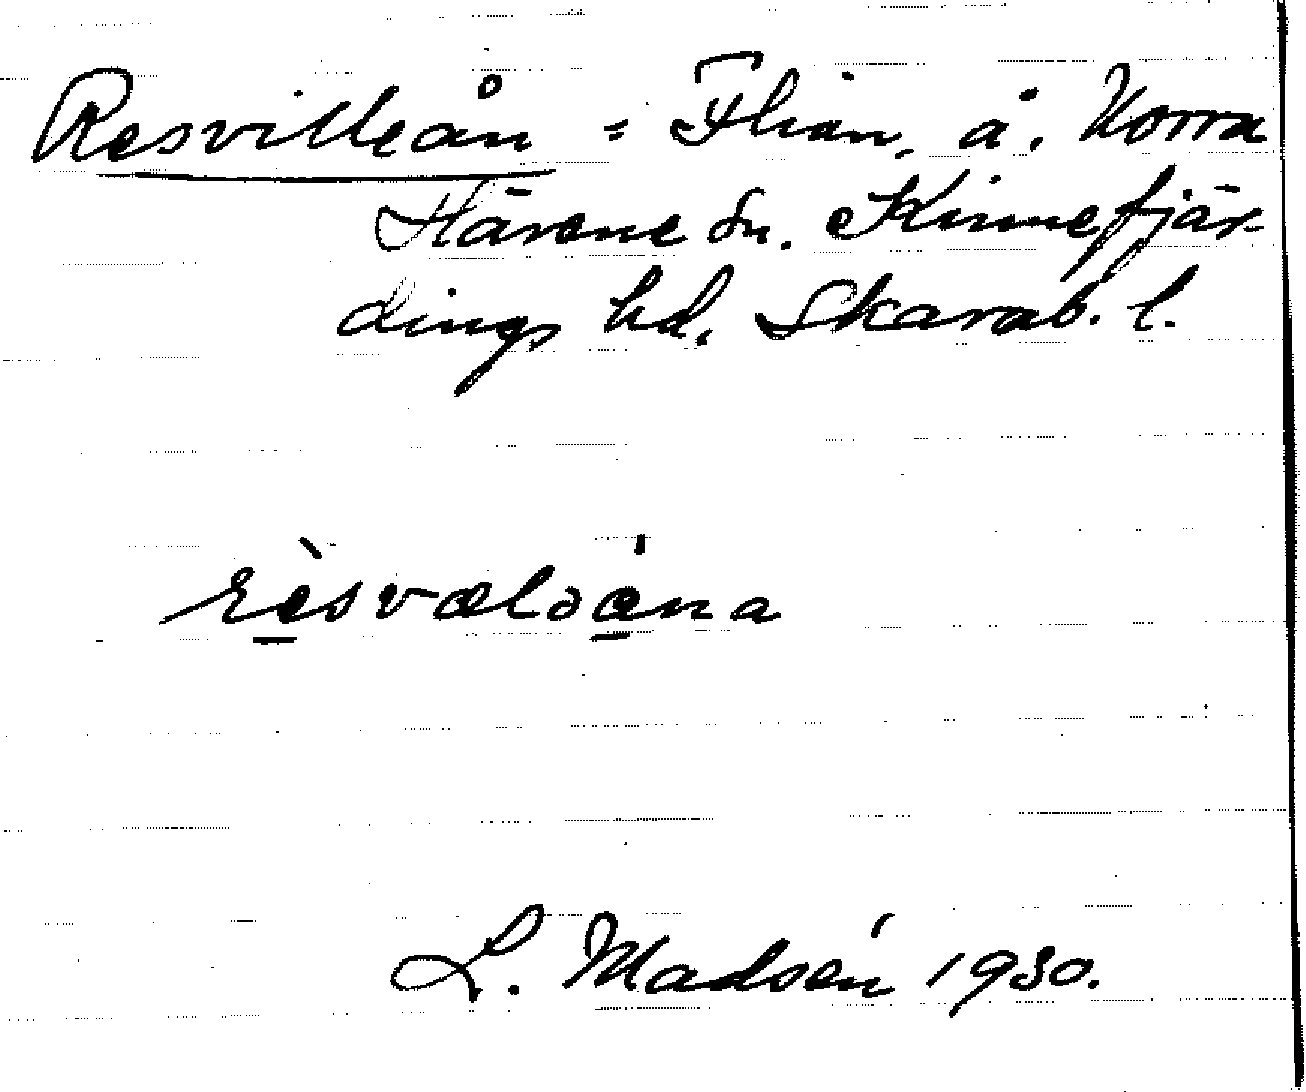 Resvilleån = Flian, å. Norra
Härene sn. Kinnefjär-
dings hd. Skarab. l.
rèsvælǝána
L. Madsén 1930.